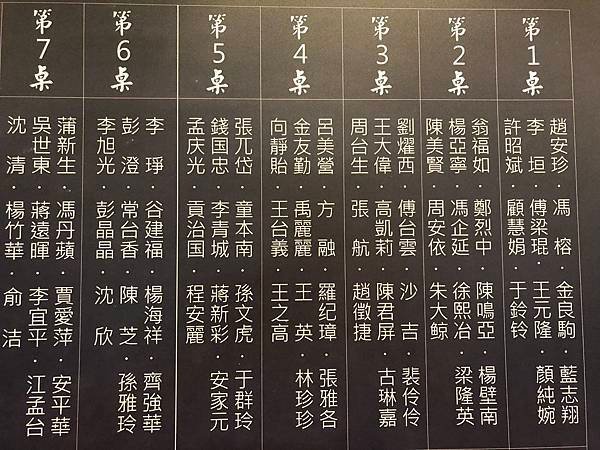 第1桌
趙安珍·馮榕·金良駒·藍志翔
李垣·傅梁琨·王元隆·顏純婉
許昭斌·顧慧娟·于鈴铃
第2桌
翁福如·鄭烈中·陳鳴亞·楊壁南
楊亞寧·馮企延·徐熙冶·梁隆英
陳美賢·周安依·朱大鲸
第3桌
劉燿西·傅台雲·沙吉·裴伶伶
王大偉·高凱莉·陳君屏·古琳嘉
周台生·張航·趙徵捷
第4桌
呂美營·方融·羅纪璋·張雅各
金友勤·禹麗麗·王英·林珍珍
向靜貽·王台義·王之高
第5桌
張兀岱·童本南·孫文虎·于群玲
錢国忠·李青城·蔣新彩·安家元
孟庆光·貢治国·程安麗
第6桌
李琤·谷建福·楊海祥·齊強華
彭澄·常台香·陳芝·孫雅玲
李旭光·彭晶晶·沈欣
第7桌
蒲新生·馮丹蘋·賈愛萍·安平華
吳世東·蔣遠暉·李宜平·江孟台
沈清·楊竹華·俞洁